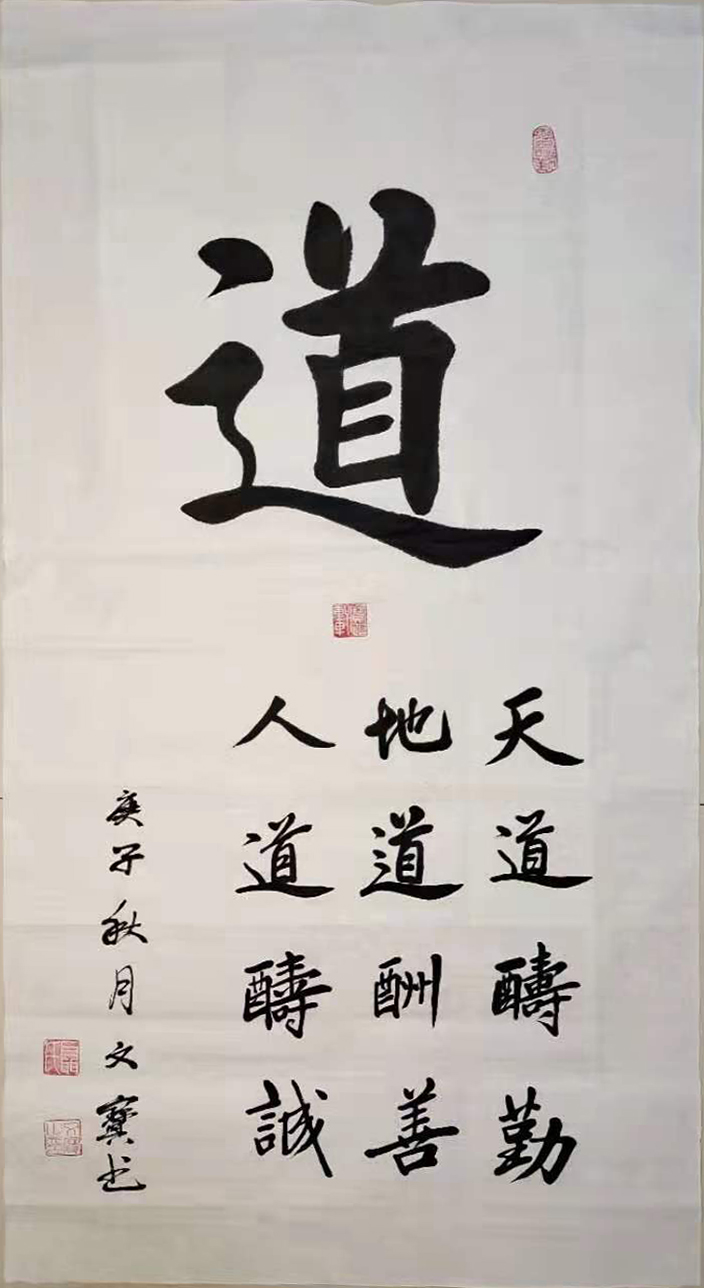 道
天道醻勤
地道酬善
人道醻誠
庚子秋月文寶书